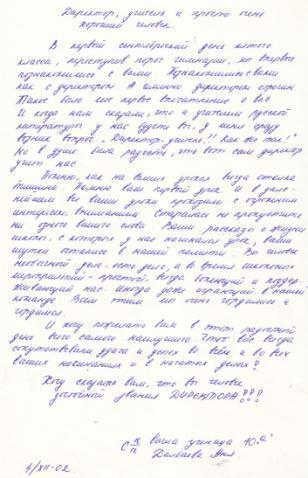 Директор, учитель и просто очень
хороший человек.
В первый сентябрьский день пятого
класса, переступив порог гимназии, мы впервые
познакомились с вами. Познакомились с вами
как с директором. А именно директором строгим
Такое было мое первое впечатление о вас
И когда нам сказали, что и учителем русской
литературы у нас будете вы, у меня сразу
возник вопрос „Директор-учитель!! Как же так!"
Но в душе была радость, что вот сам директор
учит нас.
Помню, как на ваших уроках всегда стояла
тишина. Помню ваш первый урок. И в даль-
нейшем все ваши уроки проходили с
интересом, вниманием. Старалась не пропустить
ни одного вашего слова. Ваши рассказы о жизни
с которых у нас начинался урок, ваши
шутки остались в нашей памяти. Вы человек
необычный дело - есть дело, а во время школьного
мероприятия - простой, всегда и поддер-
живающий нас. Иногда даже играющий в нашей
команде. Всем этим мы очень гордились и
гордимся.
И хочу пожелать вам в этот радостный
день всего самого наилучшего. Чтоб вас всегда
сопутствовали удача и успех во всём и во всех
ваших начинаниях и в начатых делах!
Хочу сказать вам, что вы человек
достойный звания ДИРЕКТОРА!!!
С п/п ваша ученица 10 „а"
Аня.
4/XII-02.